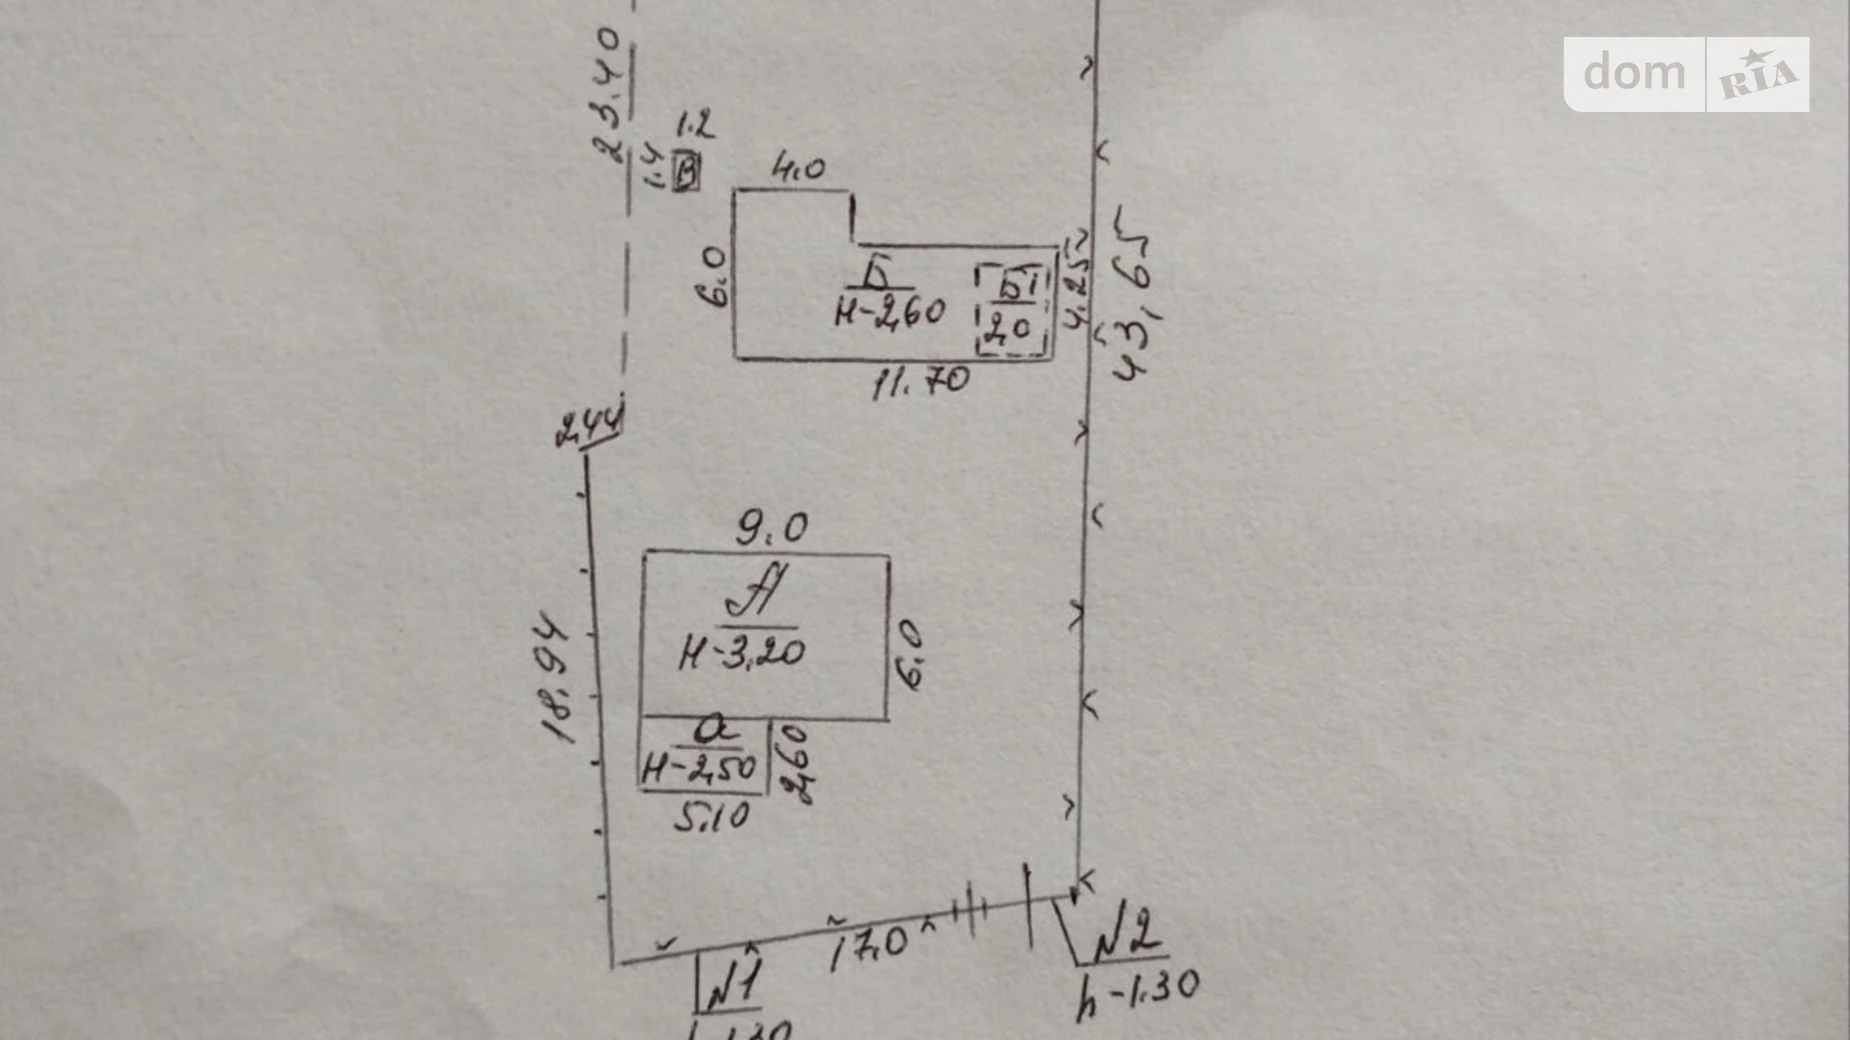 dom RIA
23.40
1.2
1.4
В
4.0
6.0
Б
Н-2,60
Б1
2,0
4.25
43,65
11.70
2,44
9.0
А
Н-3,20
6.0
18,94
а
Н-2,50
2,60
5.10
17,0
N1
N2
h-1.30